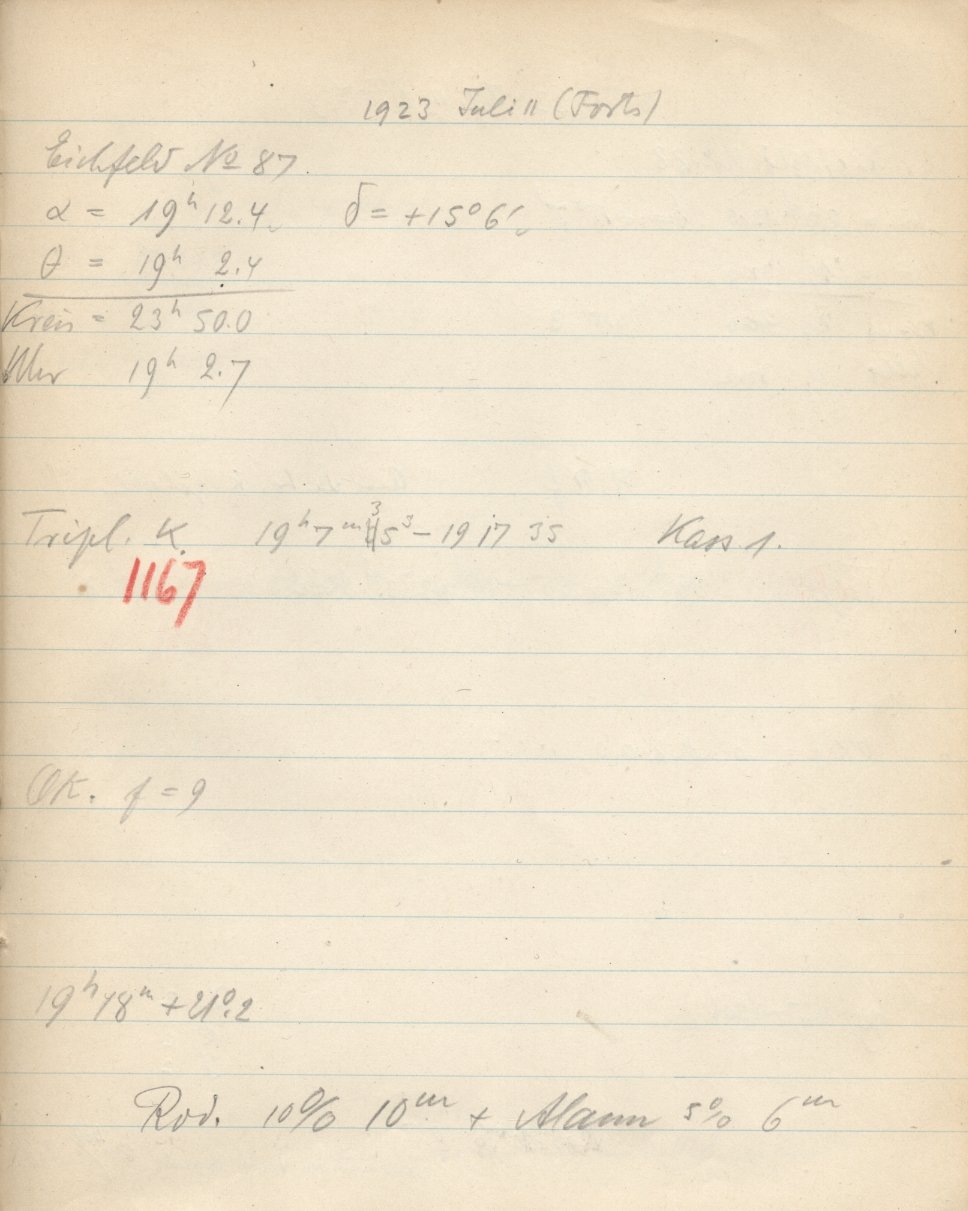 1923 Juli 11 (Forts)
Eichfeld № 87
α = 19ʰ 12.4 δ = +15° 6'
θ = 19ʰ 2.4
Kreis = 23ʰ 50.0
Uhr 19ʰ 2.7
Tripl. K. 19ʰ 7ᵐ 35ˢ – 19 17 35 Kass 1.
1167
Ok. f = 9
19ʰ 18ᵐ + 21°.2
Rod. 10% 10ᵐ + Alaun 5% 6ᵐ